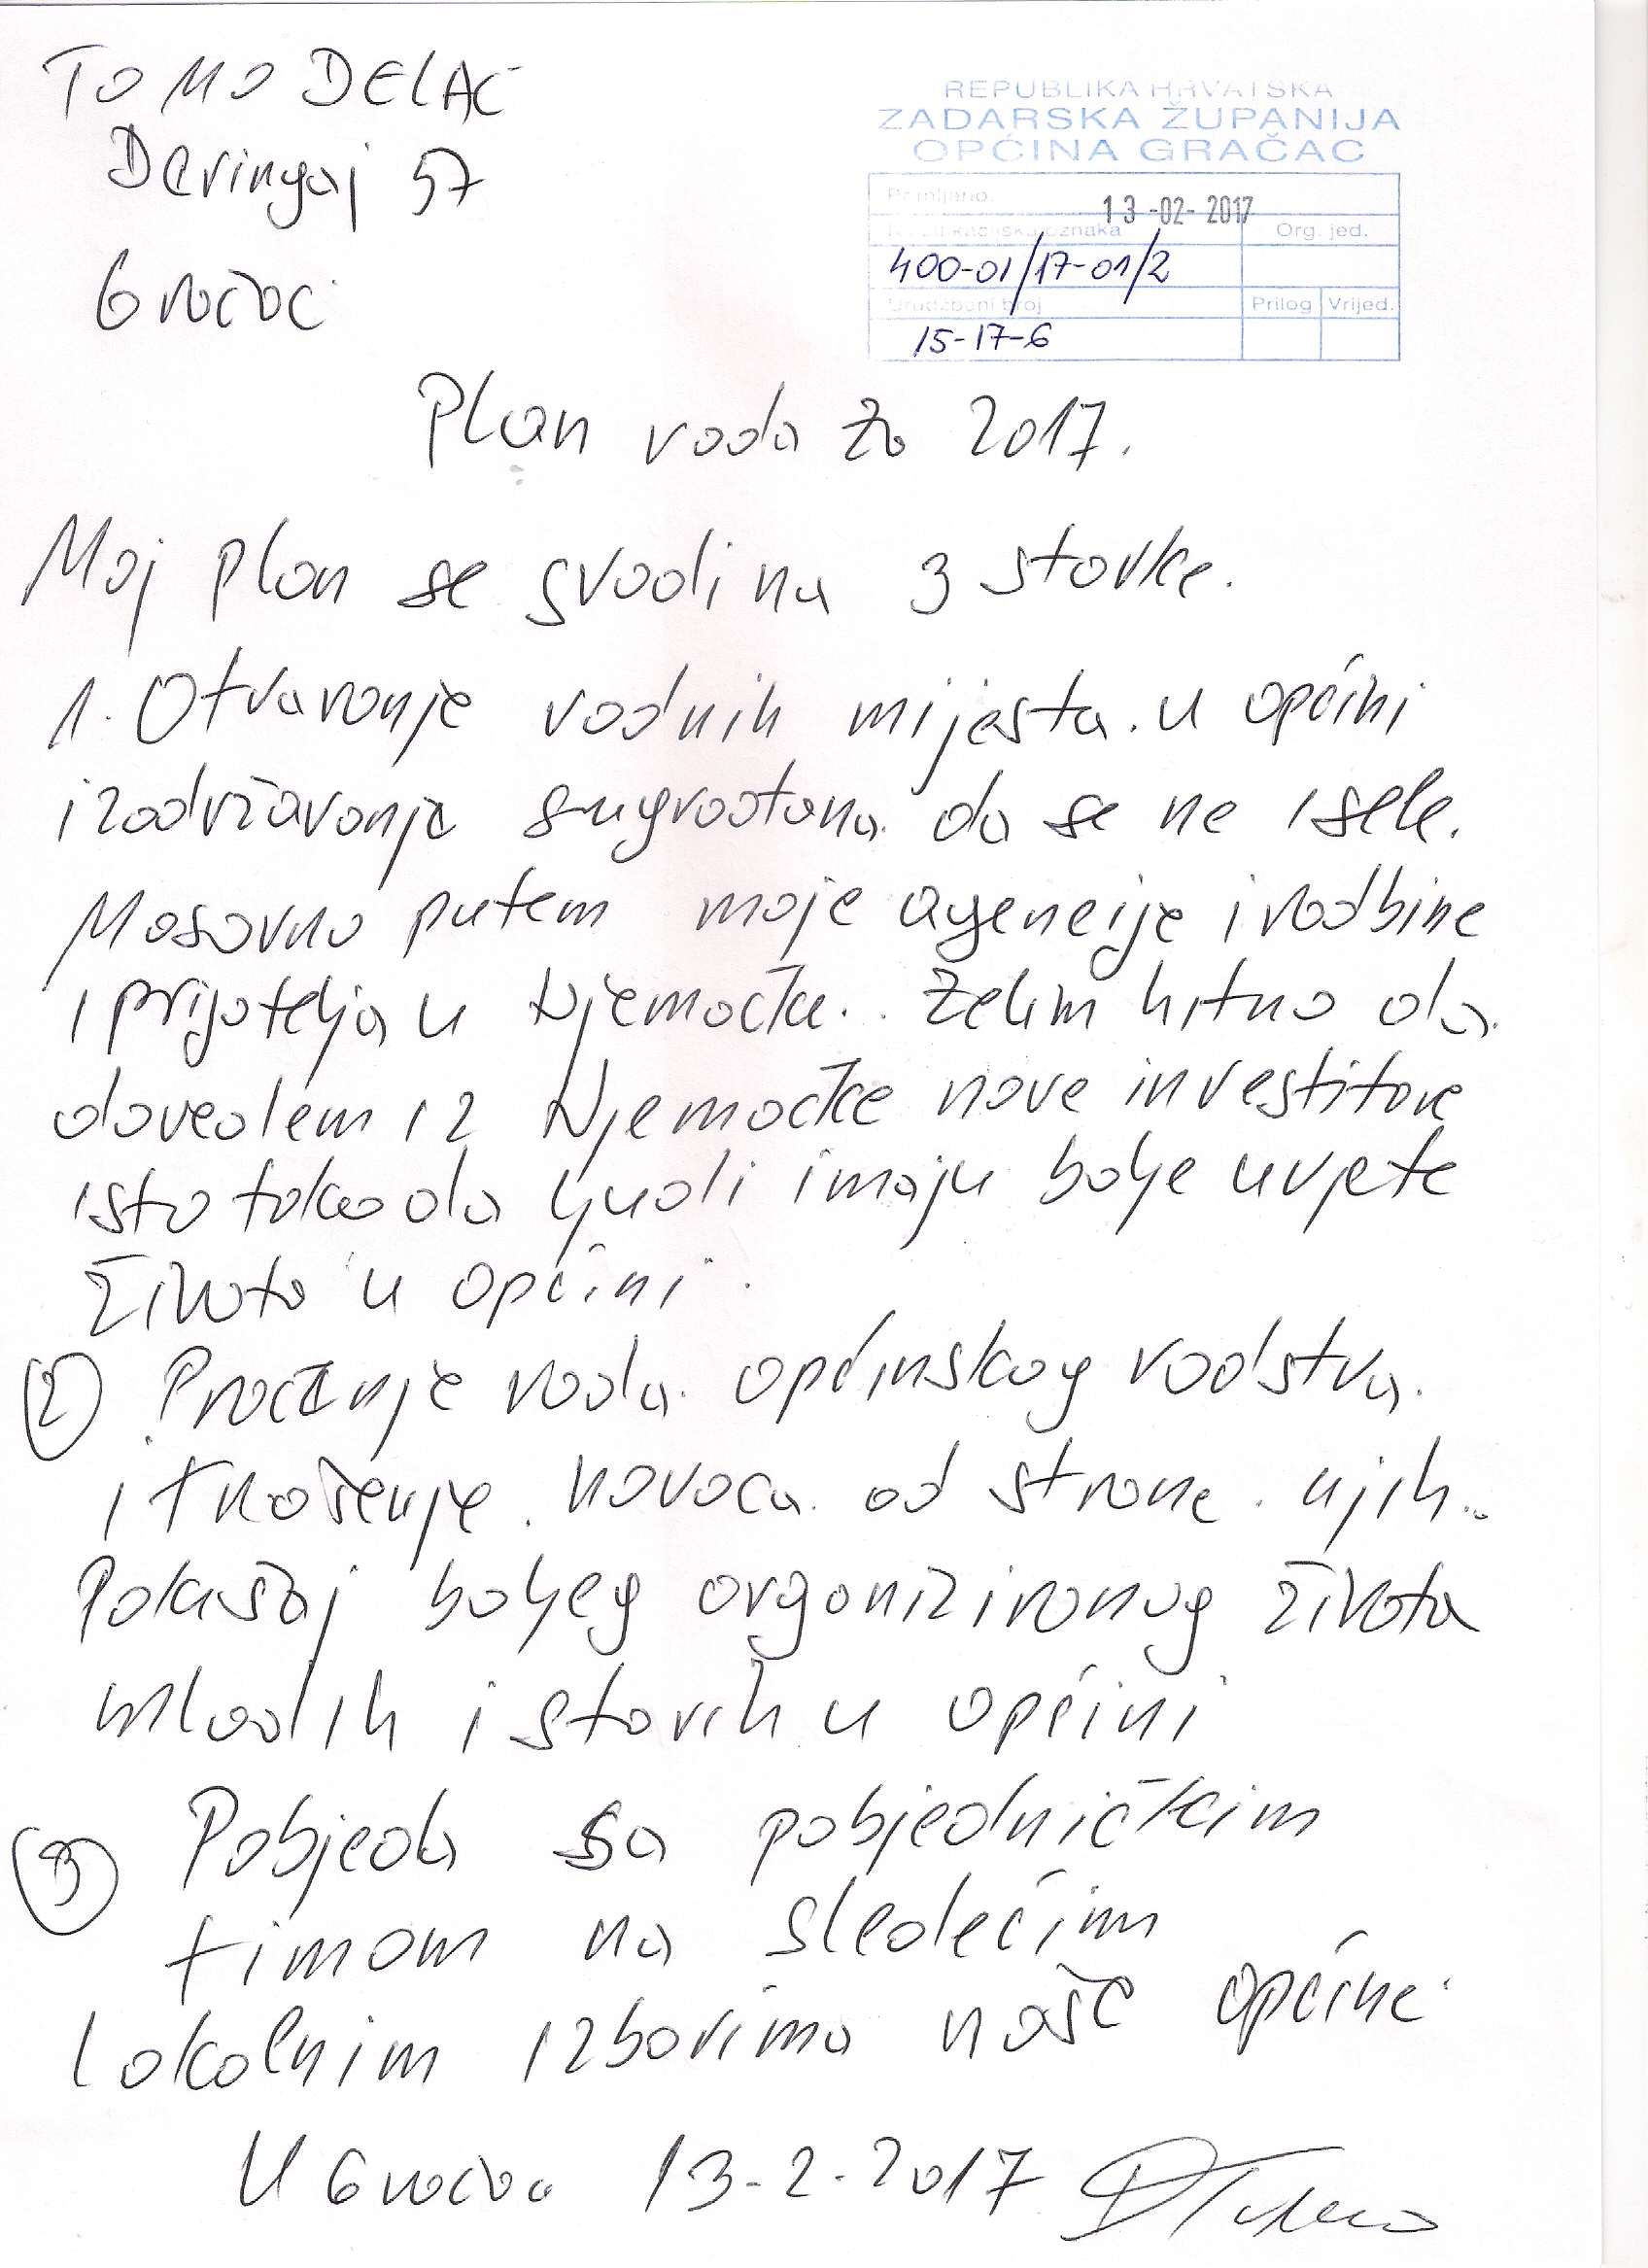 TOMO DELAČ
Deringaj 57
Gračac
REPUBLIKA HRVATSKA
ZADARSKA ŽUPANIJA
OPĆINA GRAČAC
Primljeno:
13-02-2017
Klasifikacijska oznaka
Org. jed.
400-01/17-01/2
Urudžbeni broj
Prilog
Vrijed.
15-17-6
Plan rada za 2017.
Moj plan se svodi na 3 stavke.
1. Otvaranje radnih mijesta u općini
i zadržavanje sugrađana da se ne isele.
Masovno putem moje agencije i rodbine
i prijatelja u Njemačke. Želim hitno da
dovedem iz Njemačke nove investitore
isto tako da ljudi imaju bolje uvjete
života u općini.
2) Praćenje rada općinskog vodstva
i trošenje novaca od strane njih..
Pokušaj boljeg organiziranog života
mladih i starih u općini
3) Pobjeda sa pobjedničkim
timom na sledećim
lokalnim izborima naše općine
U Gračacu 13-2-2017